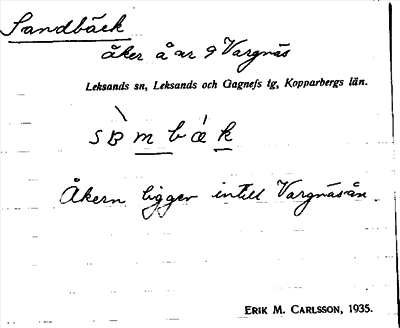 Sandbäck
åker å ar 9 Vargnäs
Leksands sn, Leksands och Gagnefs tg, Kopparbergs län.
Åkern ligger intill Vargnäsån.
ERIK M. CARLSSON, 1935.